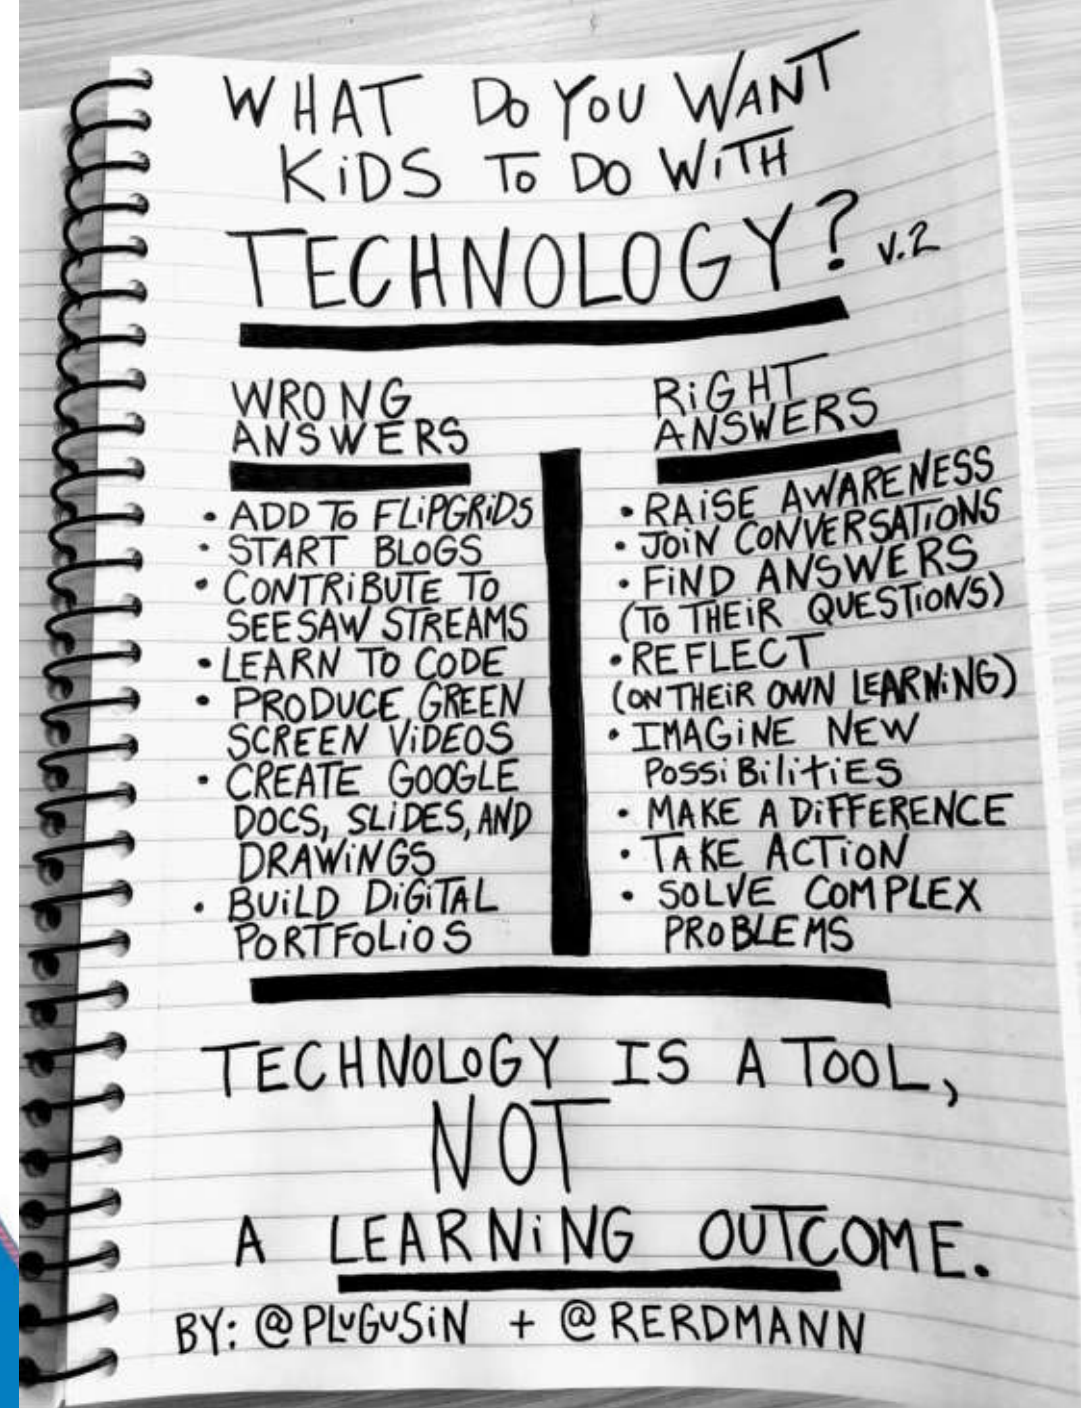 WHAT DO YOU WANT
KiDS TO DO WiTH
TECHNOLOGY? v.2
WRONG
ANSWERS
• ADD TO FLiPGRiDS
• START BLOGS
• CONTRiBUTE TO
SEESAW STREAMS
• LEARN TO CODE
• PRODUCE GREEN
SCREEN ViDEOS
• CREATE GOOGLE
DOCS, SLiDES, AND
DRAWiNGS
• BUiLD DiGiTAL
PORTFOLiOS
RiGHT
ANSWERS
• RAiSE AWARENESS
• JOiN CONVERSATiONS
• FiND ANSWERS
(TO THEiR QUESTiONS)
• REFLECT
(ON THEiR OWN LEARNiNG)
• IMAGiNE NEW
POSSiBiLiTiES
• MAKE A DiFFERENCE
• TAKE ACTiON
• SOLVE COMPLEX
PROBLEMS
TECHNOLOGY IS A TOOL,
NOT
A LEARNiNG OUTCOME.
BY: @PLUGUSiN + @RERDMANN